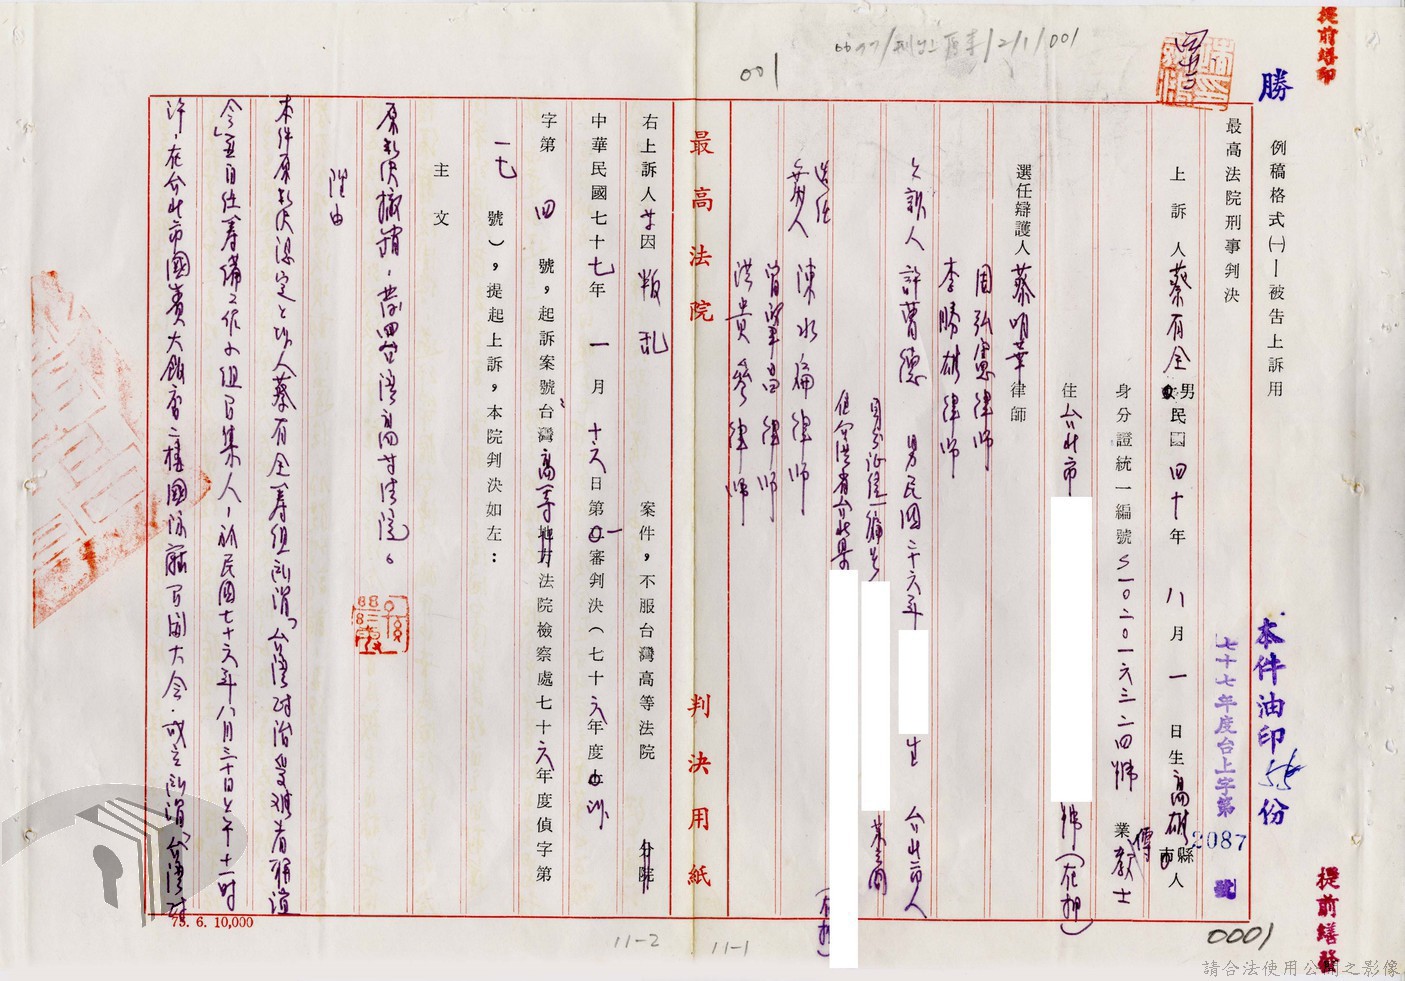 提前繕印
勝
0697/刑台上專/2/1/001
001
例稿格式㈠—被告上訴用
本件油印55份
提前繕發
最高法院刑事判決
七十七年度台上字第2087號
上訴人蔡有全 男 民國四十年八月一日生高雄縣人
身分證統一編號S一〇二〇一六三二四號 業 傳教士
住台北市 號(在押)
選任辯護人 蔡明華 律師
周弘憲律師
李勝雄律師
上訴人 許曹德 男民國二十六年 生 台北市人
男身分證統一編號 業商
住台灣省台北縣 (在押)
選任辯護人 陳水扁律師
曾肇昌律師
洪貴參律師
最高法院 判決用紙
右上訴人等因 叛亂 案件,不服台灣高等法院
中華民國七十七年一月十六日第一審判決(七十六年度訴
字第四號,起訴案號台灣高等法院檢察處七十六年度偵字第
一七號),提起上訴,本院判決如左:
主文
原判決撤銷,發回台灣高等法院。
理由
本件原判決認定上訴人蔡有全籌組所謂「台灣政治受難者聯誼
會」並自任籌備工作小組召集人,於民國七十六年八月三十日上午十一時
許,在台北市國賓大飯店二樓國際廳召開大會,成立所謂「台灣政
73. 6. 10,000
11-2
11-1
0001
請合法使用公開之影像